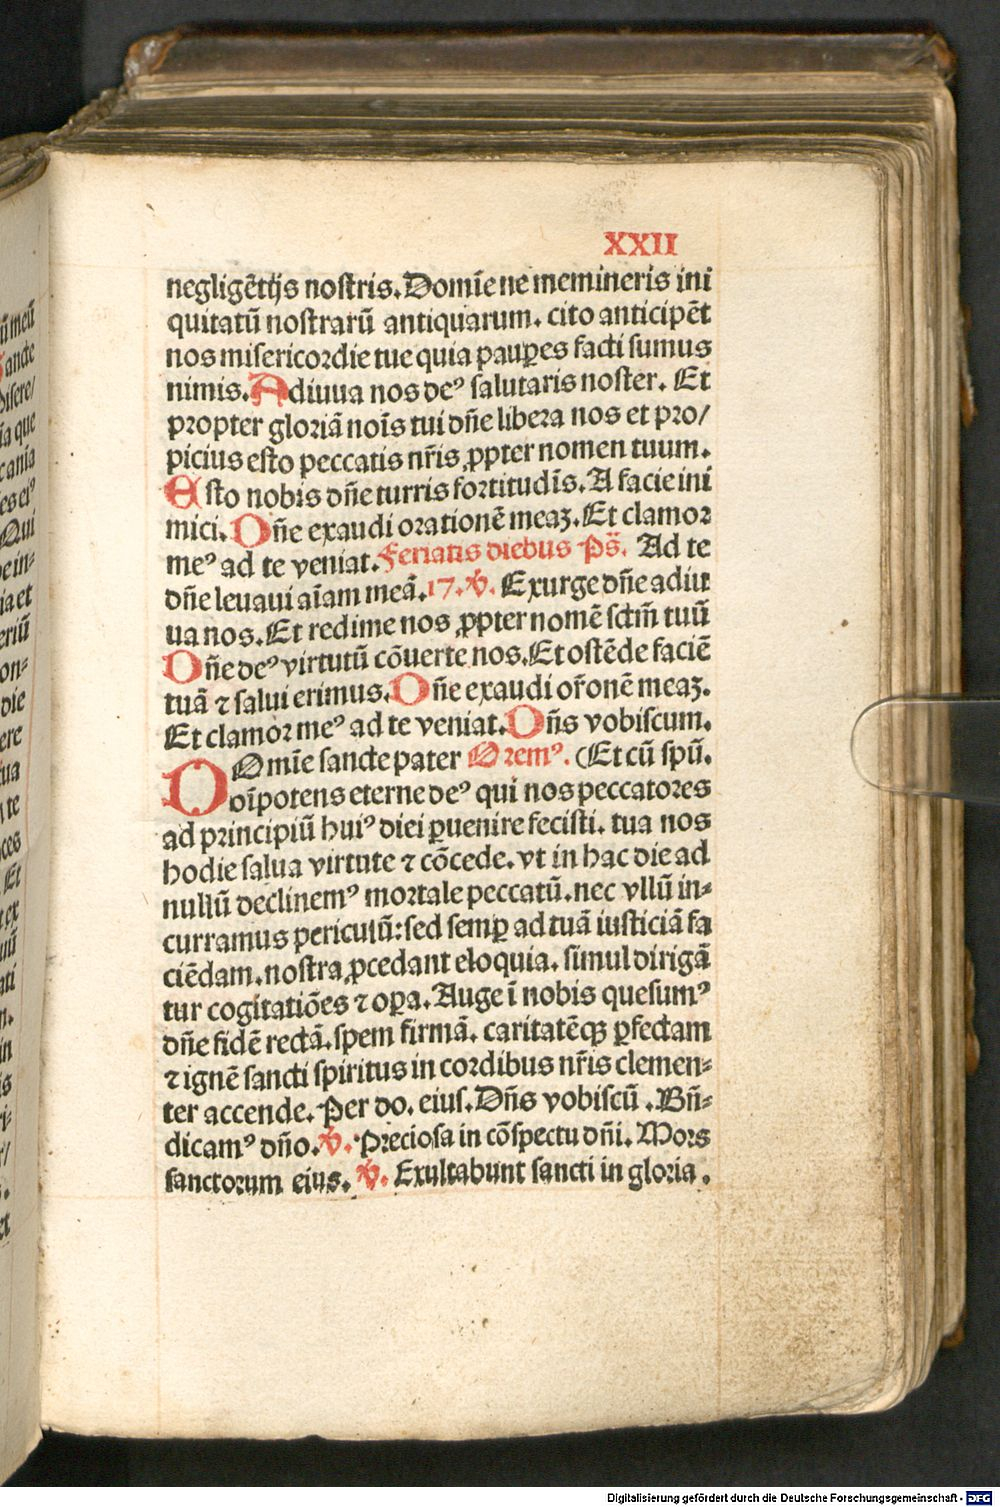 XXII
neglige̅tijs nostris. Domi̅e ne memineris ini
quitatu̅ nostraru̅ antiquarum. cito anticipe̅t
nos misericordie tue quia paup̲es facti sumus
nimis. Adiuua nos deꝰ salutaris noster. Et
propter gloria̅ noi̅s tui dn̅e libera nos et pro/
picius esto peccatis nr̅is ꝓpter nomen tuum.
Esto nobis dn̅e turris fortitudi̅s. A facie ini
mici. Dn̅e exaudi oratione̅ meaꝫ. Et clamor
meꝰ ad te veniat. Feriatis diebus Ps̅. Ad te
dn̅e leuaui ai̅am mea̅. 17. ℣. Exurge dn̅e adiu
ua nos. Et redime nos ꝓpter nome̅ sctm̅ tuu̅
Dn̅e deꝰ virtutu̅ co̅uerte nos. Et oste̅de facie̅
tua̅ ⁊ salui erimus. Dn̅e exaudi or̅one̅ meaꝫ.
Et clamor meꝰ ad te veniat. Dn̅s vobiscum.
DOmi̅e sancte pater Oremꝰ. (Et cu̅ spu̅.
oi̅potens eterne deꝰ qui nos peccatores
ad principiu̅ huiꝰ diei ꝑuenire fecisti. tua nos
hodie salua virtute ⁊ co̅cede. vt in hac die ad
nullu̅ declinemꝰ mortale peccatu̅. nec vllu̅ in-
curramus periculu̅: sed semꝑ ad tua̅ iusticia̅ fa
cie̅dam. nostra ꝓcedant eloquia. simul diriga̅
tur cogitatio̅es ⁊ oꝑa. Auge i̅ nobis quesumꝰ
dn̅e fide̅ recta̅. spem firma̅. caritate̅qꝫ ꝑfectam
⁊ igne̅ sancti spiritus in cordibus nr̅is clemen-
ter accende. Per do. eius. Dn̅s vobiscu̅. Bn̅-
dicamꝰ dn̅o. ℣. Preciosa in co̅spectu dn̅i. Mors
sanctorum eius. ℣. Exultabunt sancti in gloria.
Digitalisierung gefördert durch die Deutsche Forschungsgemeinschaft - DFG